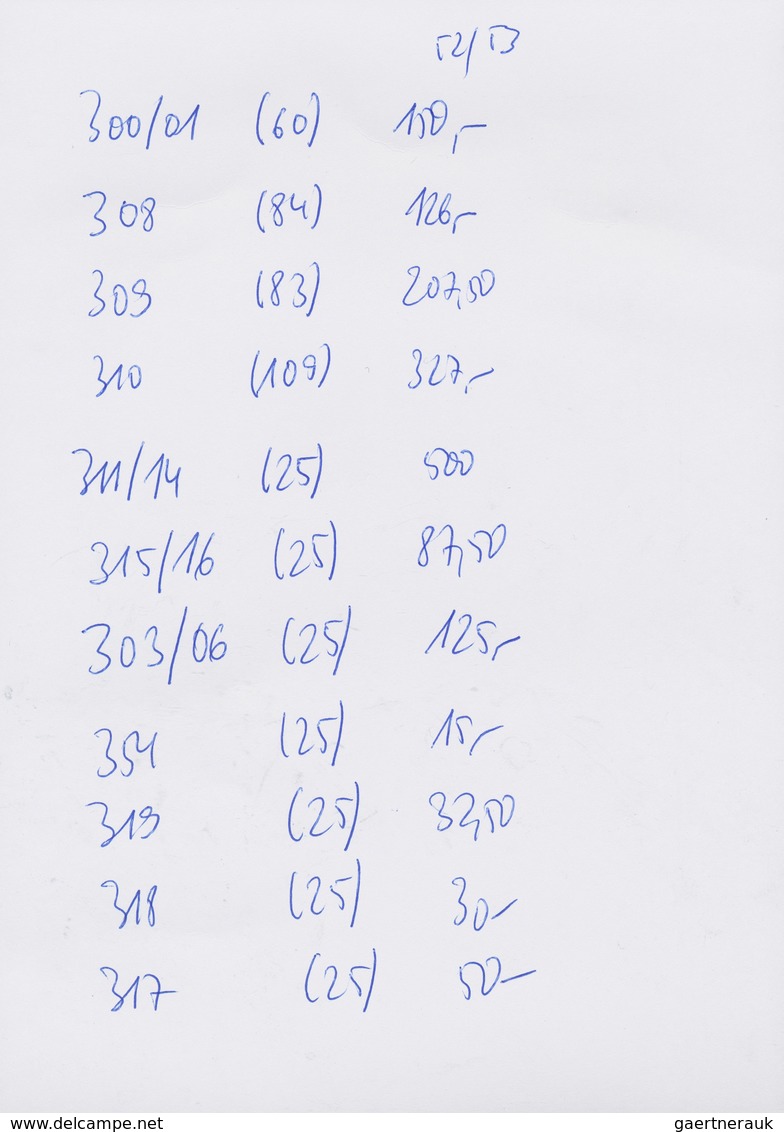 52/53
300/01 (60) 150,-
308 (84) 126,-
309 (83) 207,50
310 (109) 327,-
311/14 (25) 500
315/16 (25) 87,50
303/06 (25) 125,-
354 (25) 15,-
319 (25) 32,50
318 (25) 30,-
317 (25) 50,-
www.delcampe.net gaertnerauk